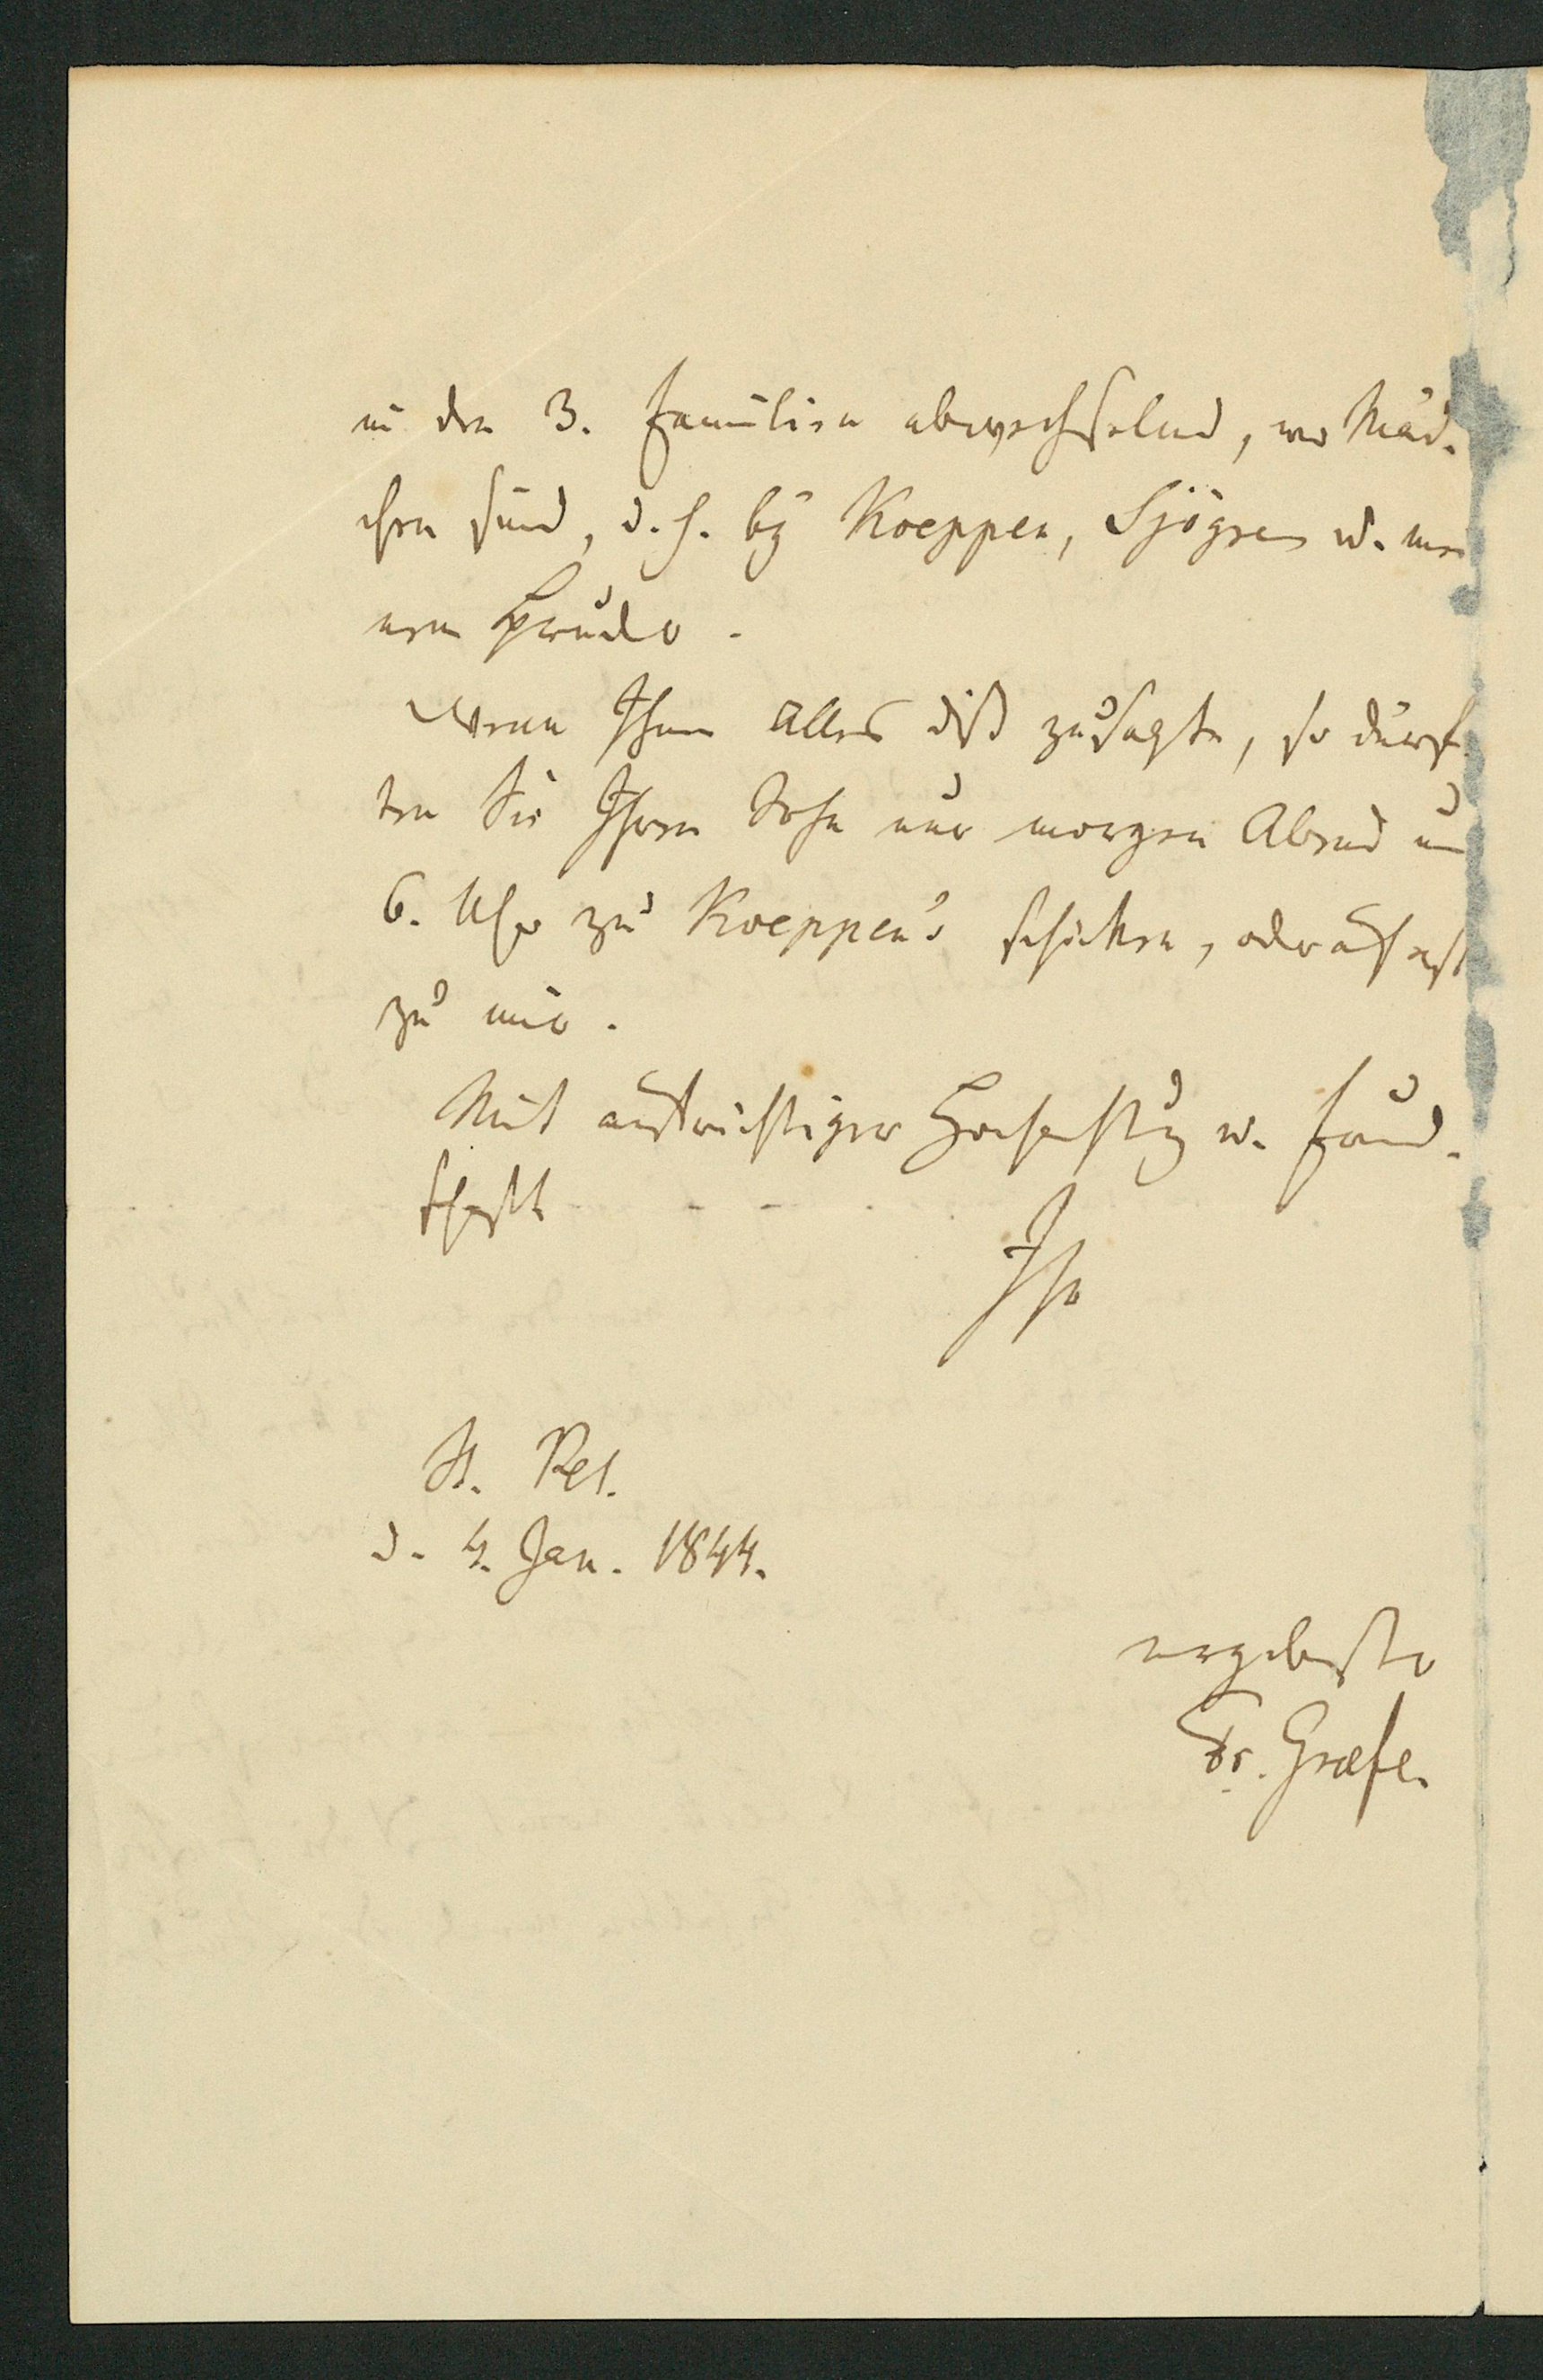 in den 3. Familien abwechselnd, wo Mäd-
chen sind, d. h. bey Koeppen, Sjögren u. mei
nem
Wenn Ihnen Alles diß zusagte, so dürf
ten Sie Ihren Sohn nur morgen Abend um
6. Uhr zu Koeppen's schicken, oder auch erst
zu mir.
Mit aufrichtiger Hochachtung u. Freund-
schaft
Ihr
St. Pet.
d. 4. Jan. 1844.
ergebenster
Fr. Graefe.